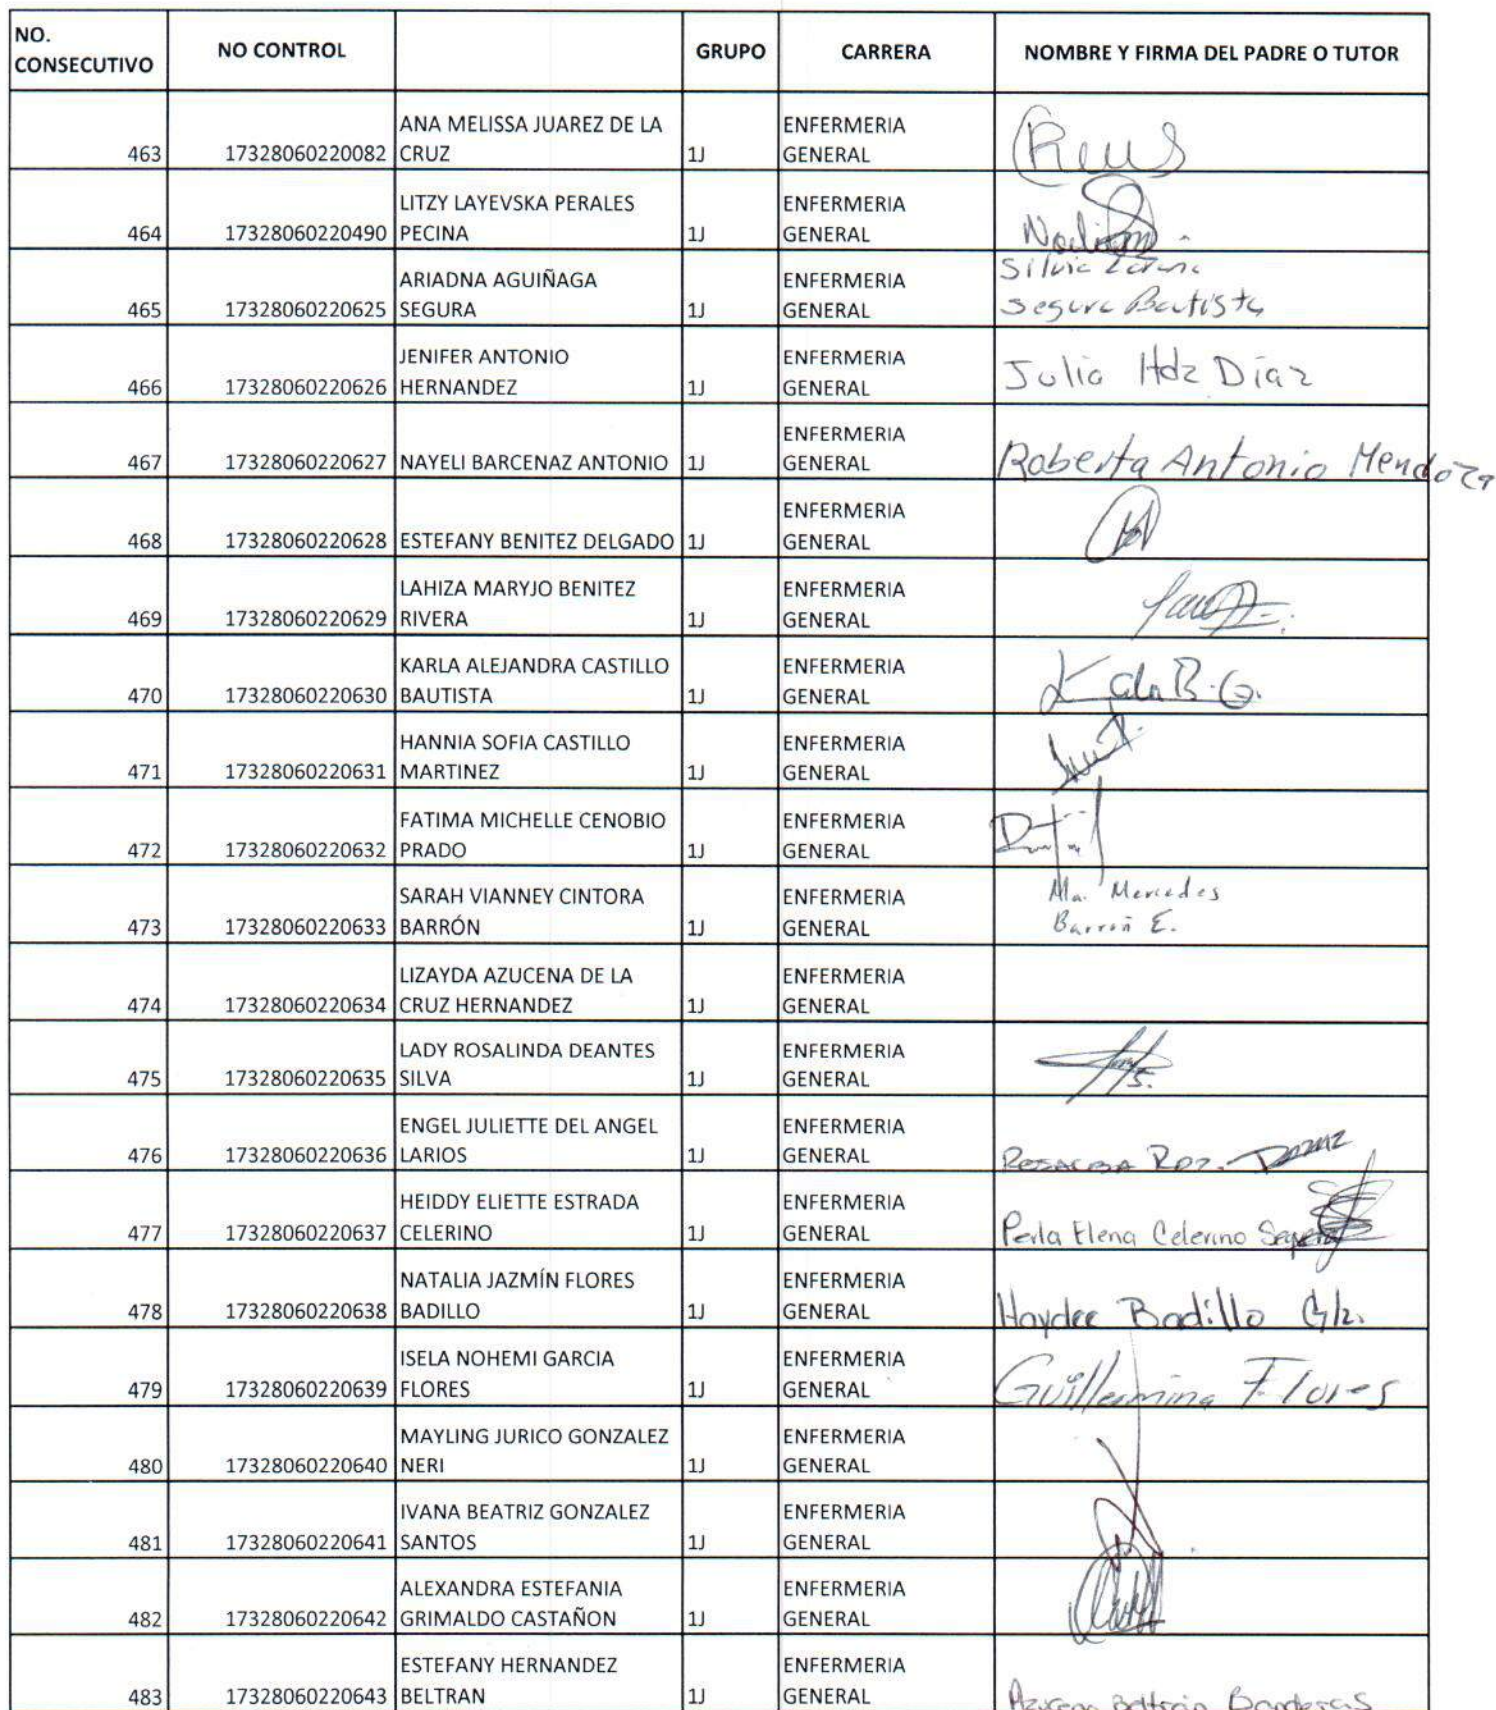 NO. CONSECUTIVO NO CONTROL GRUPO CARRERA NOMBRE Y FIRMA DEL PADRE O TUTOR
463 17328060220082 ANA MELISSA JUAREZ DE LA CRUZ 1J ENFERMERIA GENERAL
464 17328060220490 LITZY LAYEVSKA PERALES PECINA 1J ENFERMERIA GENERAL
465 17328060220625 ARIADNA AGUIÑAGA SEGURA 1J ENFERMERIA GENERAL Silvia Lorena Segura Bautista
466 17328060220626 JENIFER ANTONIO HERNANDEZ 1J ENFERMERIA GENERAL Julia Hdz Díaz
467 17328060220627 NAYELI BARCENAZ ANTONIO 1J ENFERMERIA GENERAL Roberta Antonio Mendoza
468 17328060220628 ESTEFANY BENITEZ DELGADO 1J ENFERMERIA GENERAL
469 17328060220629 LAHIZA MARYJO BENITEZ RIVERA 1J ENFERMERIA GENERAL
470 17328060220630 KARLA ALEJANDRA CASTILLO BAUTISTA 1J ENFERMERIA GENERAL
471 17328060220631 HANNIA SOFIA CASTILLO MARTINEZ 1J ENFERMERIA GENERAL
472 17328060220632 FATIMA MICHELLE CENOBIO PRADO 1J ENFERMERIA GENERAL
473 17328060220633 SARAH VIANNEY CINTORA BARRÓN 1J ENFERMERIA GENERAL Ma. Mercedes Barrón E.
474 17328060220634 LIZAYDA AZUCENA DE LA CRUZ HERNANDEZ 1J ENFERMERIA GENERAL
475 17328060220635 LADY ROSALINDA DEANTES SILVA 1J ENFERMERIA GENERAL
476 17328060220636 ENGEL JULIETTE DEL ANGEL LARIOS 1J ENFERMERIA GENERAL
477 17328060220637 HEIDDY ELIETTE ESTRADA CELERINO 1J ENFERMERIA GENERAL Perla Elena Celerino
478 17328060220638 NATALIA JAZMÍN FLORES BADILLO 1J ENFERMERIA GENERAL Haydee Badillo
479 17328060220639 ISELA NOHEMI GARCIA FLORES 1J ENFERMERIA GENERAL Guillermina Flores
480 17328060220640 MAYLING JURICO GONZALEZ NERI 1J ENFERMERIA GENERAL
481 17328060220641 IVANA BEATRIZ GONZALEZ SANTOS 1J ENFERMERIA GENERAL
482 17328060220642 ALEXANDRA ESTEFANIA GRIMALDO CASTAÑON 1J ENFERMERIA GENERAL
483 17328060220643 ESTEFANY HERNANDEZ BELTRAN 1J ENFERMERIA GENERAL Azucena Beltrán Banderas